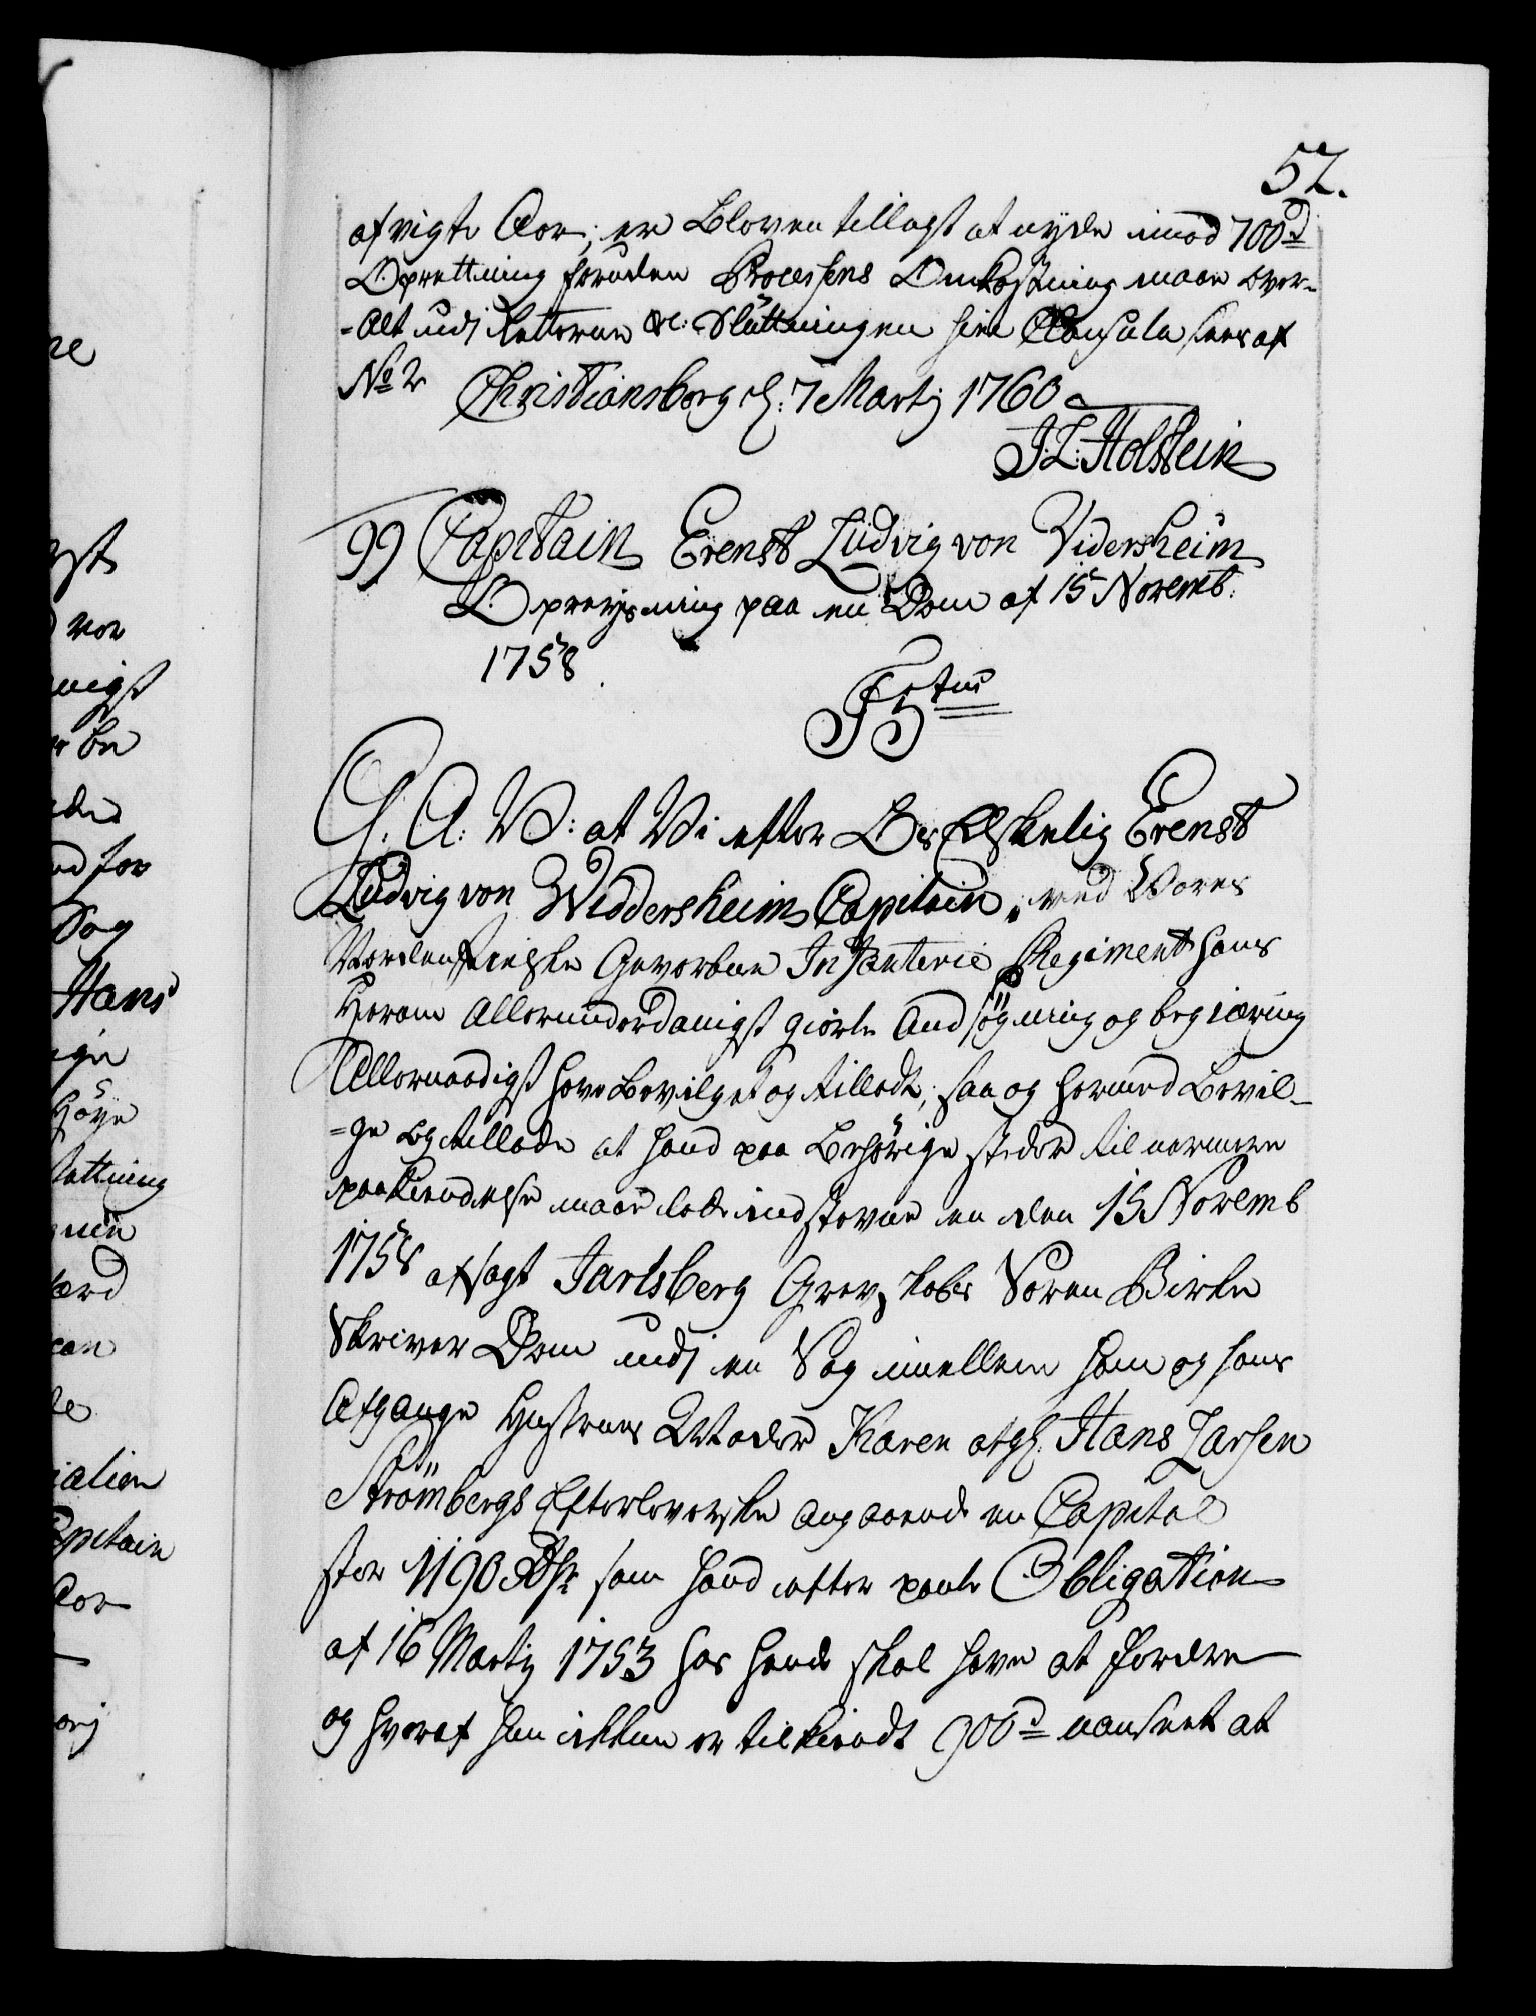 52.
afvigte Aar, er bleven tillagt at nyde imod 700d
Oprettning foruden Processens Omkostning maae over-
-alt udi Retterne &c: Slüttningen sine Clausula sees af
No 2 Christiansborg d: 7 Martj 1760
J: L: Holstein
99 Capitain Erenst Ludvig von Vidersheim
Opreysning paa en Dom af 15 Novemb:
1758
F5tus
G. A. V: at Vi efter Os Elskelig Erenst
Ludvig von Widdersheim Capitain, ved Vores
Nordenfieldske Gevorbne Infanterie Regiment hans
herom Allerunderdanigst giorte Andsøgning og begiæring
Allernaadigst have bevilget og tilladt, saa og hermed bevil-
-ge og tillade at hand paa behörige steder til nærmere
paakiendelse maae lade indstevne en den 15 Novemb
1758 afsagt Jarlsberg Grevskabs Soren Birke
Skriver Dom udi en Sag imellem ham og hans
Afgangne Hustrues Moder Karen afgl: Hans Larsen
Strömbergs Efterleverske angaaende en Capital
stor 1190 Rdr som hand efter paate Obligation
af 16 Martj 1753 hos hende skal have at fordre
og hvoraf ham ikkun er tilkiendt 900d uanseet at